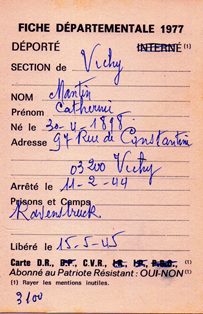 FICHE DÉPARTEMENTALE 1977
DÉPORTÉ INTERNÉ (1)
SECTION de Vichy
NOM Mantin
Prénom Catherine
Né le 30-4-1898
Adresse 97 Rue de Constantine
03200 Vichy
Arrêté le 11-2-44
Prisons et Camps
Ravensbruck
Libéré le 15-5-45
Carte D.R., D.P., C.V.R., I.R., I.P., P.R.O., (1)
Abonné au Patriote Résistant : OUI-NON (1)
(1) Rayer les mentions inutiles.
3100